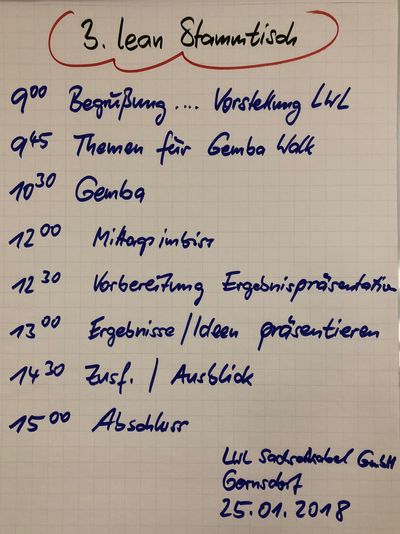 3. lean Stammtisch
9⁰⁰ Begrüßung .... Vorstellung LWL
9⁴⁵ Themen für Gemba Walk
10³⁰ Gemba
12⁰⁰ Mittagsimbiss
12³⁰ Vorbereitung Ergebnispräsentation
13⁰⁰ Ergebnisse / Ideen präsentieren
14³⁰ Zusf. / Ausblick
15⁰⁰ Abschluss
LWL Sachsenkabel GmbH
Gornsdorf
25.01.2018